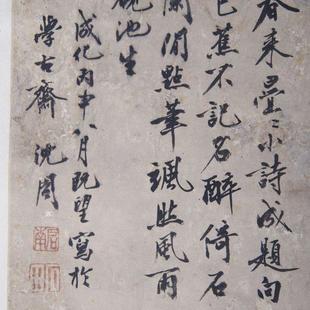 春来叠〻小詩成題向
巴蕉不記名醉倚石
闌閒點筆颯然風雨
硯池生
成化丙申八月既望寫於
學古齋 沈周
啟南